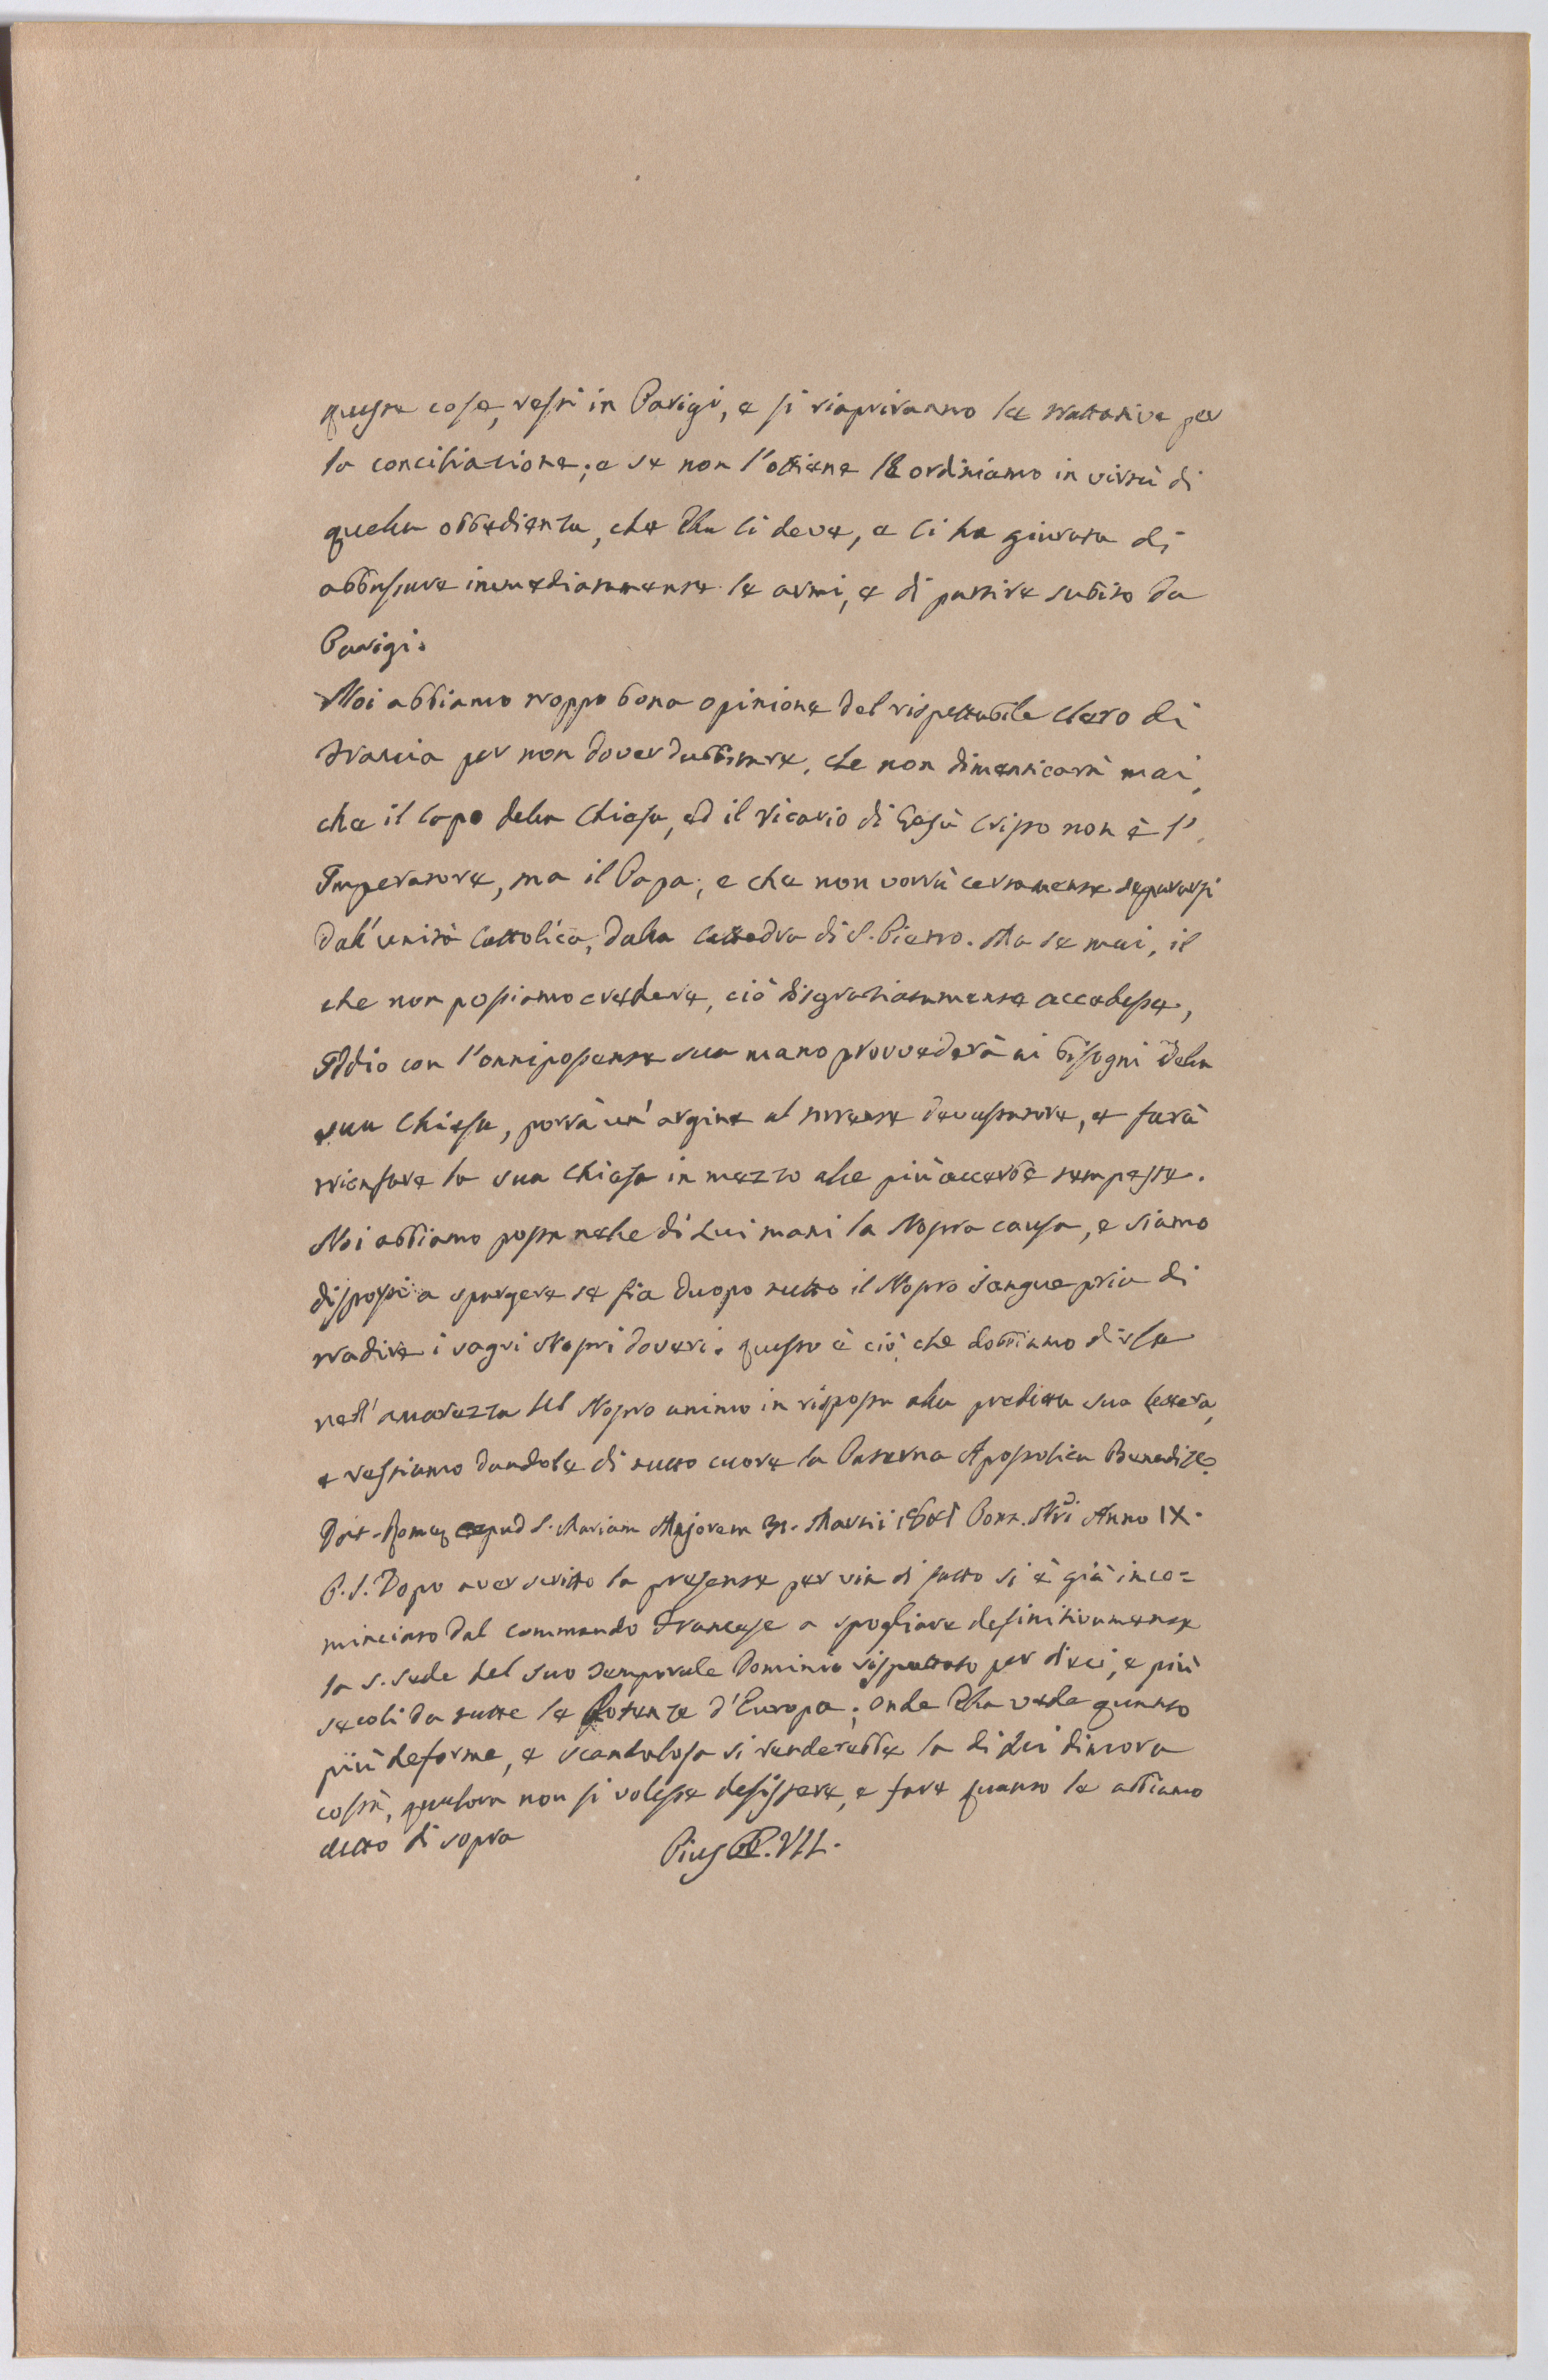 queste cose, resti in Parigi, e si riapriranno le trattative per
la conciliazione; e se non l'ottiene le ordiniamo in virtù di
quella obbedienza, che Ella ci deve, e ci ha giurata di
abbassare immediatamente le armi, e di partire subito da
Parigi.
Noi abbiamo troppo bona opinione del rispettabile Clero di
Francia per non dover dubbitare, che non dimenticarà mai,
che il Capo della Chiesa, ed il Vicario di Gesù Cristo non è l'
Imperatore, ma il Papa; e che non vorrà certamente separarsi
dall'unità Cattolica, dalla Cattedra di S. Pietro. Ma se mai, il
che non possiamo credere, ciò disgraziatamente accadesse,
Iddio con l'onnipotente sua mano provvederà ai bisogni della
sua Chiesa, porrà un' argine al torrente devastatore, e farà
trionfare la sua Chiesa in mezzo alle più accerbe tempeste.
Noi abbiamo posta nelle di Lui mani la Nostra causa, e siamo
disposti a spargere se fia duopo tutto il Nostro sangue pria di
tradire i sagri Nostri doveri. questo è ciò, che dobbiamo dirle
nell'amarezza del Nostro animo in risposta alla predetta sua lettera,
e restiamo dandole di tutto cuore la Paterna Apostolica Benedize.
Dat. Romæ apud S. Mariam Majorem 31. Martii Pont. Nri Anno IX.
P.S. Dopo aver scritto la presente per via di fatto si è già inco=
minciato dal commando Francese a spogliare definitivamente
la S. Sede del suo temporale Dominio rispettato per dieci, e più
secoli da tutte le Potenze d'Europa; onde Ella vede quanto
più deforme, e scandalosa si renderebbe la di Lei dimora
costà, qualora non si volesse desistere, e fare quanto le abbiamo
detto di sopra
Pius PP. VII.